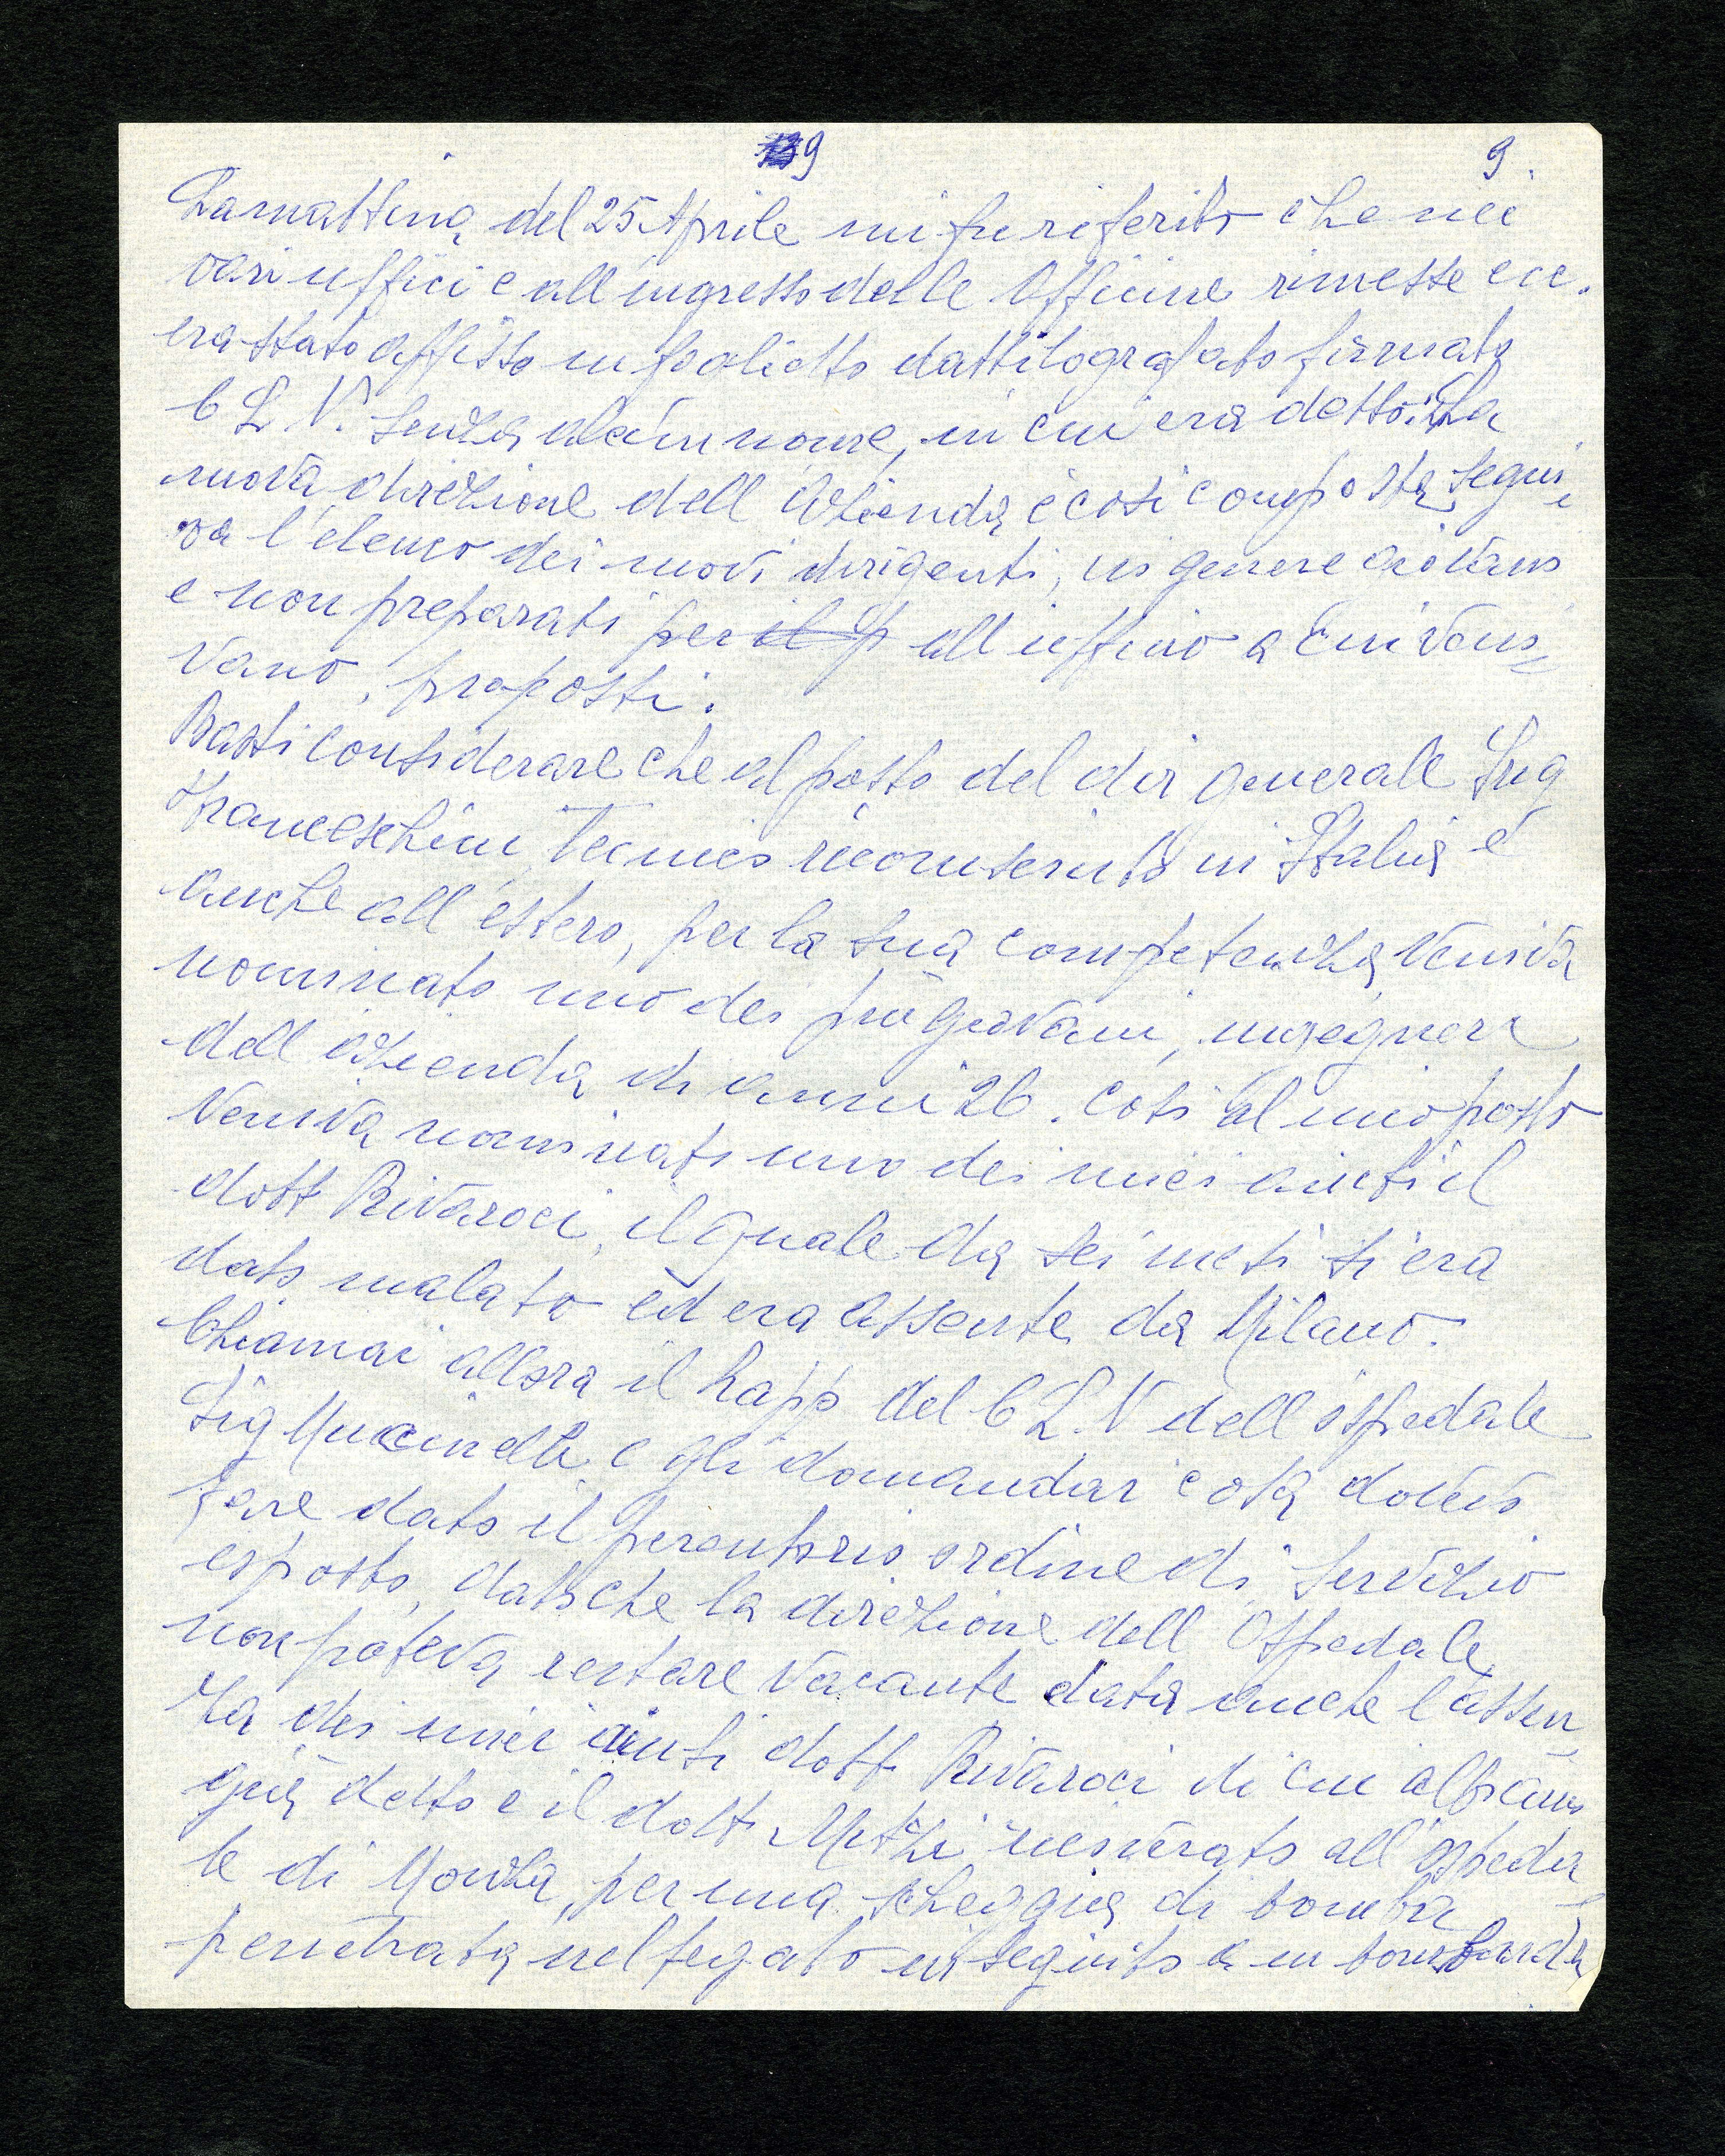 9 9.
La mattina del 25 Aprile mi fu riferito che nei
vari uffici e all'ingresso delle Officine rimesse ecc.
era stato affisso un foglietto dattilografato firmato
C L N. senza alcun nome, in cui era detto: La
nuova direzione dell'Azienda è così composta segui
va l'elenco dei nuovi dirigenti, in genere giovani
e non preparati per il p all'ufficio a cui veni=
vano, proposti.
Basti considerare che al posto del dir generale Ing
Franceschini, tecnico riconosciuto in Italia e
anche all'estero, per la sua competenza, veniva
nominato uno dei più giovani, ingegnere
dell'azienda di anni 26. Così al mio posto
veniva nominato uno dei miei aiuti il
dott Rivaroci, il quale da sei mesi si era
dato malato ed era assente da Milano.
Chiamai allora il Rapp del C L.N dell'ospedale
Sig Muccinelli e gli domandai cosa dovevo
fare dato il perentorio ordine di servizio
esposto, dato che la direzione dell'Ospedale
non poteva restare vacante data anche l'assen
za dei miei aiuti dott Rivaroci di cui abbiamo
già detto e il dott ricoverato all'ospeda
le di Monza, per una scheggia di bomba
penetrata nel fegato in seguito a un bombarda